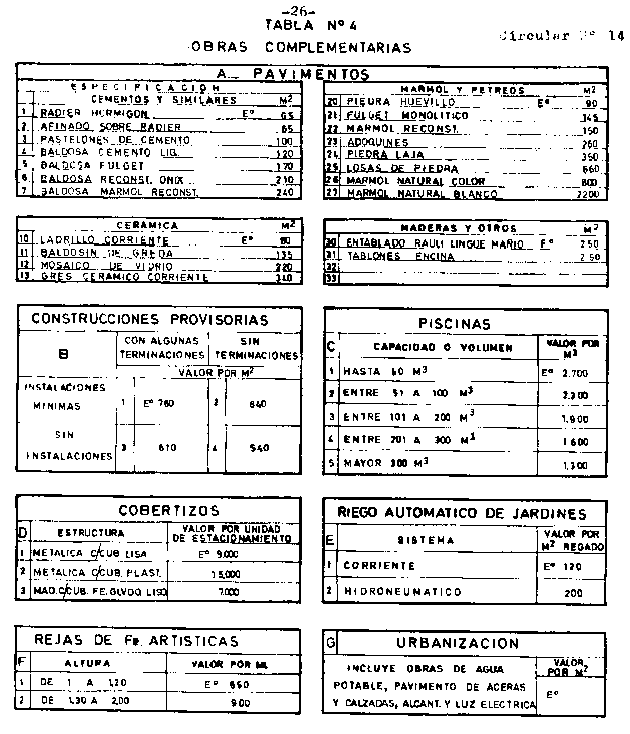 -26-
TABLA Nº 4
Circular Nº 14
OBRAS COMPLEMENTARIAS
A_ PAVIMENTOS
ESPECIFICACION
CEMENTOS Y SIMILARES M²
1 RADIER HORMIGON Eº 65
2 AFINADO SOBRE RADIER 65
3 PASTELONES DE CEMENTO 100
4 BALDOSA CEMENTO LIG. 120
5 BALDOSA FULGET 170
6 BALDOSA RECONST. ONIX 210
7 BALDOSA MARMOL RECONST. 240
MARMOL Y PETREOS M²
20 PIEDRA HUEVILLO Eº 90
21 FULGET MONOLITICO 145
22 MARMOL RECONST. 150
23 ADOQUINES 260
24 PIEDRA LAJA 350
25 LOSAS DE PIEDRA 660
26 MARMOL NATURAL COLOR 800
27 MARMOL NATURAL BLANCO 2200
CERAMICA M²
10 LADRILLO CORRIENTE Eº 80
11 BALDOSIN DE GREDA 135
12 MOSAICO DE VIDRIO 220
13 GRES CERAMICO CORRIENTE 340
MADERAS Y OTROS M²
30 ENTABLADO RAULI LINGUE MAÑIO Eº 250
31 TABLONES ENCINA 250
32
33
CONSTRUCCIONES PROVISORIAS
B
CON ALGUNAS TERMINACIONES
SIN TERMINACIONES
VALOR POR M²
INSTALACIONES MINIMAS 1 Eº 760 2 640
SIN INSTALACIONES 3 610 4 540
PISCINAS
C CAPACIDAD O VOLUMEN VALOR POR M³
1 HASTA 50 M³ Eº 2.700
2 ENTRE 51 A 100 M³ 2.300
3 ENTRE 101 A 200 M³ 1.900
4 ENTRE 201 A 300 M³ 1.600
5 MAYOR 300 M³ 1.300
COBERTIZOS
D ESTRUCTURA VALOR POR UNIDAD DE ESTACIONAMIENTO
1 METALICA C/CUB. LISA Eº 9.000
2 METALICA C/CUB. PLAST. 15.000
3 MAD. C/CUB. FE. GLVDO LISO 7.000
RIEGO AUTOMATICO DE JARDINES
E SISTEMA VALOR POR M² REGADO
1 CORRIENTE Eº 120
2 HIDRONEUMATICO 200
REJAS DE Fe. ARTISTICAS
F ALTURA VALOR POR ML
1 DE 1 A 1,20 Eº 650
2 DE 1,30 A 2,00 900
G URBANIZACION
INCLUYE OBRAS DE AGUA POTABLE, PAVIMENTO DE ACERAS Y CALZADAS, ALCANT. Y LUZ ELECTRICA
VALOR POR M²
Eº